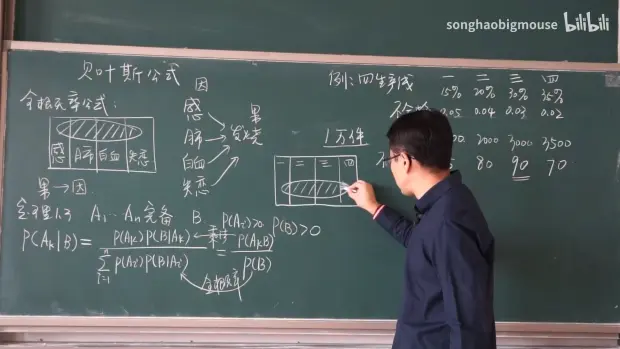 songhaobigmouse bilibili
贝叶斯公式
全概率公式:
因
感
肺
白血
失恋
果
发烧
感 肺 白血 失恋
果→因
定理1.3 A₁…Aₙ完备 B P(Aᵢ)>0 P(B)>0
P(Aₖ|B) = P(Aₖ)P(B|Aₖ) / Σᵢ₌₁ⁿ P(Aᵢ)P(B|Aᵢ) = P(AₖB) / P(B)
乘法
全概率
例:四生产线 一 二 三 四
15% 20% 30% 35%
0.05 0.04 0.03 0.02
1万件
2000 3000 3500
80 90 70
二 三 四